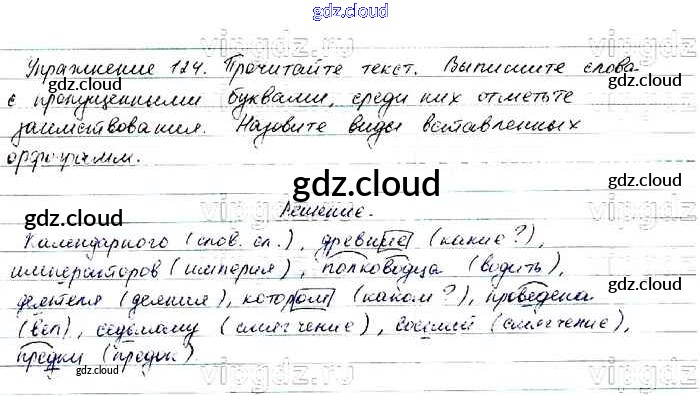 gdz.cloud
Упражнение 124. Прочитайте текст. Выпишите слова
с пропущенными буквами, среди них отметьте
заимствования. Назовите виды вставленных
орфограмм.
Решение.
Календарного (слов. сл.), древние (какие?),
императоров (империя), полководца (водить),
деятеля (деяния), котором (каком?), проведена
(вёл), седьмому (смягчение), восьмой (смягчение),
предки (предок).